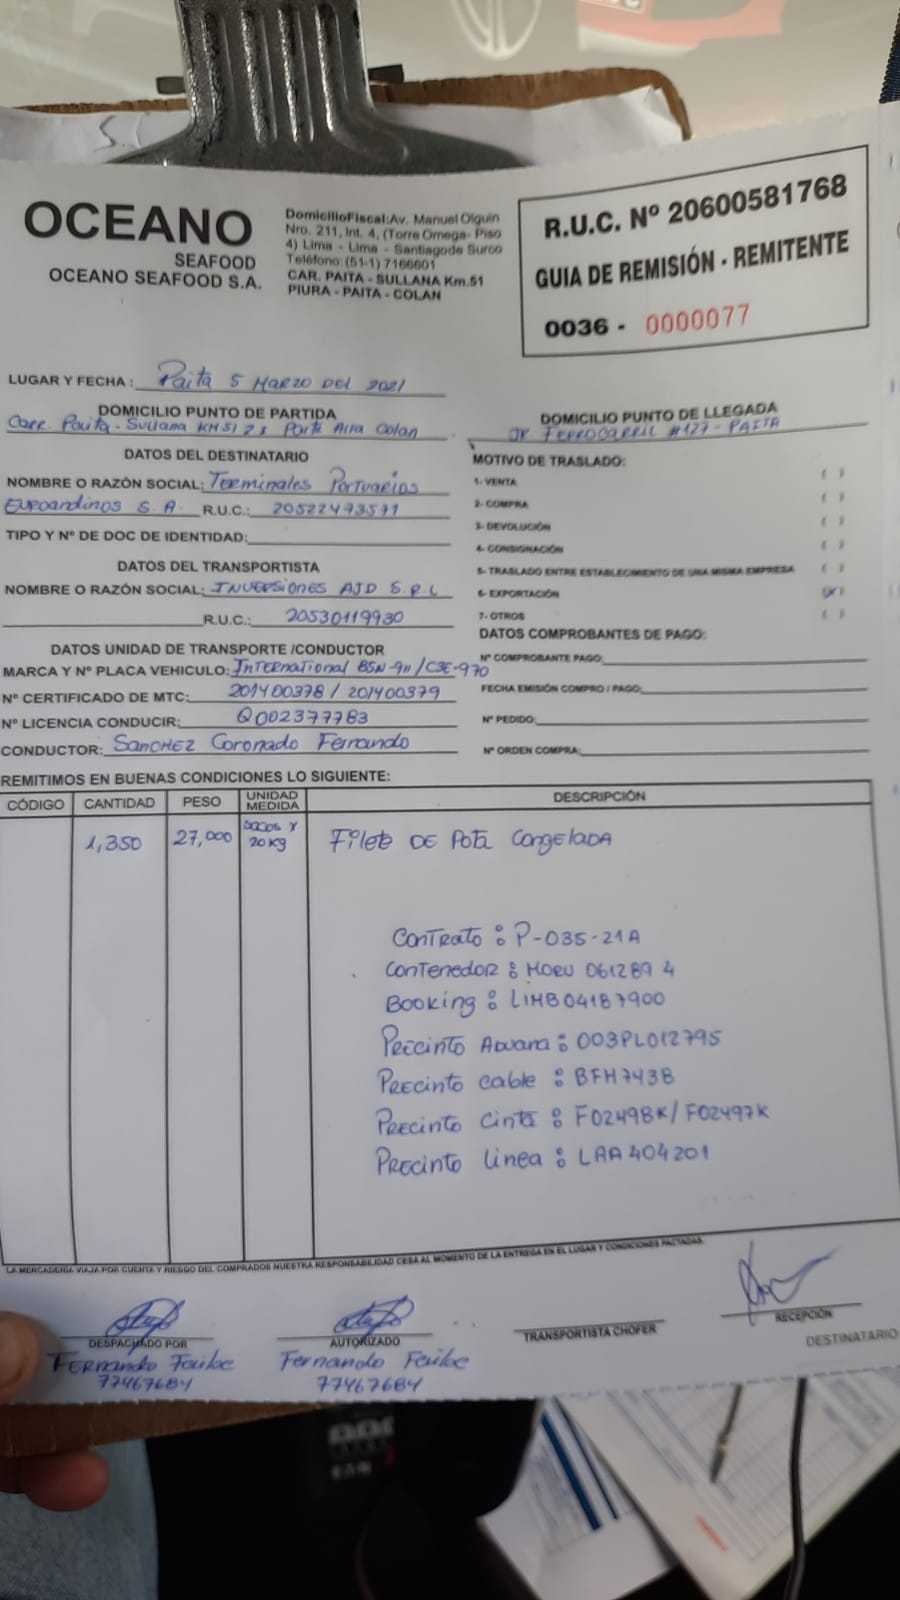 OCEANO
SEAFOOD
OCEANO SEAFOOD S.A.
DomicilioFiscal:Av. Manuel Olguin
Nro. 211, Int. 4, (Torre Omega- Piso
4) Lima - Lima - Santiagode Surco
Teléfono:(51-1) 7166601
CAR. PAITA - SULLANA Km.51
PIURA - PAITA - COLAN
R.U.C. Nº 20600581768
GUIA DE REMISIÓN - REMITENTE
0036 - 0000077
LUGAR Y FECHA: Paita 5 MARZO DEL 2021
DOMICILIO PUNTO DE PARTIDA
Carr. Paita - Sullana KM 51 Parte Alta Colan
DOMICILIO PUNTO DE LLEGADA
JR FERROCARRIL #127 - PAITA
DATOS DEL DESTINATARIO
NOMBRE O RAZÓN SOCIAL: Terminales Portuarios
Euroandinos S. A. R.U.C.: 20522473571
TIPO Y Nº DE DOC DE IDENTIDAD:
MOTIVO DE TRASLADO:
1- VENTA ( )
2- COMPRA ( )
3- DEVOLUCIÓN ( )
4- CONSIGNACIÓN ( )
5- TRASLADO ENTRE ESTABLECIMIENTO DE UNA MISMA EMPRESA ( )
6- EXPORTACIÓN (x)
7- OTROS ( )
DATOS DEL TRANSPORTISTA
NOMBRE O RAZÓN SOCIAL: INVERSIONES AJD S.R.L
R.U.C.: 20530119930
DATOS UNIDAD DE TRANSPORTE /CONDUCTOR
MARCA Y Nº PLACA VEHICULO: International BSN-911/C3E-970
Nº CERTIFICADO DE MTC: 201400378 / 201400379
Nº LICENCIA CONDUCIR: Q002377783
CONDUCTOR: SANCHEZ Coronado Fernando
DATOS COMPROBANTES DE PAGO:
Nº COMPROBANTE PAGO:
FECHA EMISIÓN COMPRO / PAGO:
Nº PEDIDO:
Nº ORDEN COMPRA:
REMITIMOS EN BUENAS CONDICIONES LO SIGUIENTE:
CÓDIGO CANTIDAD PESO UNIDAD MEDIDA DESCRIPCIÓN
1,350 27,000 sacos x 20Kg Filete DE Pota CONGELADA
Contrato : P-035-21A
Contenedor : MORU 061289 4
Booking : LIMB04187900
Precinto Aduana : 003PL012795
Precinto cable : BFH7438
Precinto Cinta : F02498K/F02497K
Precinto Linea : LAA404201
LA MERCADERÍA VIAJA POR CUENTA Y RIESGO DEL COMPRADOS NUESTRA RESPONSABILIDAD CESA AL MOMENTO DE LA ENTREGA EN EL LUGAR Y CONDICIONES PACTADAS.
DESPACHADO POR
Fernando
77467684
AUTORIZADO
Fernando
77467684
TRANSPORTISTA CHOFER
RECEPCIÓN
DESTINATARIO